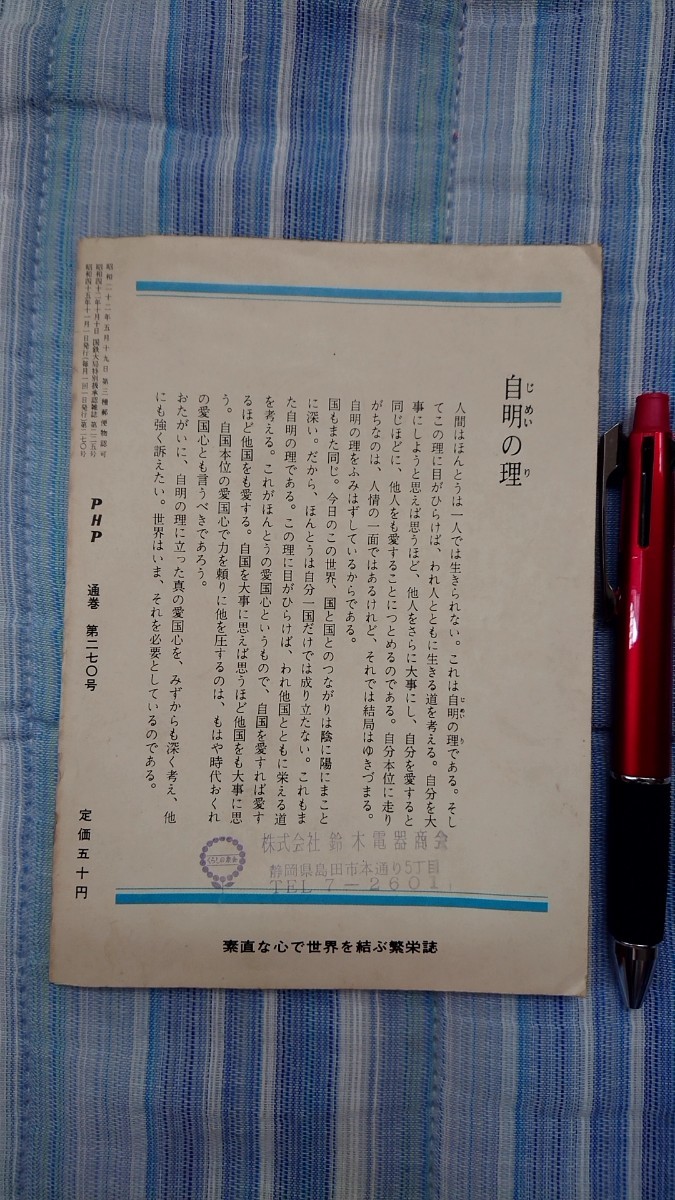 自明の理
じめい り
人間はほんとうは一人では生きられない。これは自明の理である。そし
てこの理に目がひらけば、われ人とともに生きる道を考える。自分を大
事にしようと思えば思うほど、他人をさらに大事にし、自分を愛すると
同じほどに、他人をも愛することにつとめるのである。自分本位に走り
がちなのは、人情の一面ではあるけれど、それでは結局はゆきづまる。
自明の理をふみはずしているからである。
国もまた同じ。今日のこの世界、国と国とのつながりは陰に陽にまこと
に深い。だから、ほんとうは自分一国だけでは成り立たない。これもま
た自明の理である。この理に目がひらけば、われ他国とともに栄える道
を考える。これがほんとうの愛国心というもので、自国を愛すれば愛す
るほど他国をも愛する。自国を大事に思えば思うほど他国をも大事に思
う。自国本位の愛国心で力を頼りに他を圧するのは、もはや時代おくれ
の愛国心とも言うべきであろう。
おたがいに、自明の理に立った真の愛国心を、みずからも深く考え、他
にも強く訴えたい。世界はいま、それを必要としているのである。
昭和二十二年五月十九日 第三種郵便物認可
昭和四十五年十一月一日発行(毎月一回一日発行)第二七〇号
PHP 通巻 第二七〇号 定価五十円
株式会社 鈴木電器商会
静岡県島田市本通り5丁目
TEL 7-2601
素直な心で世界を結ぶ繁栄誌